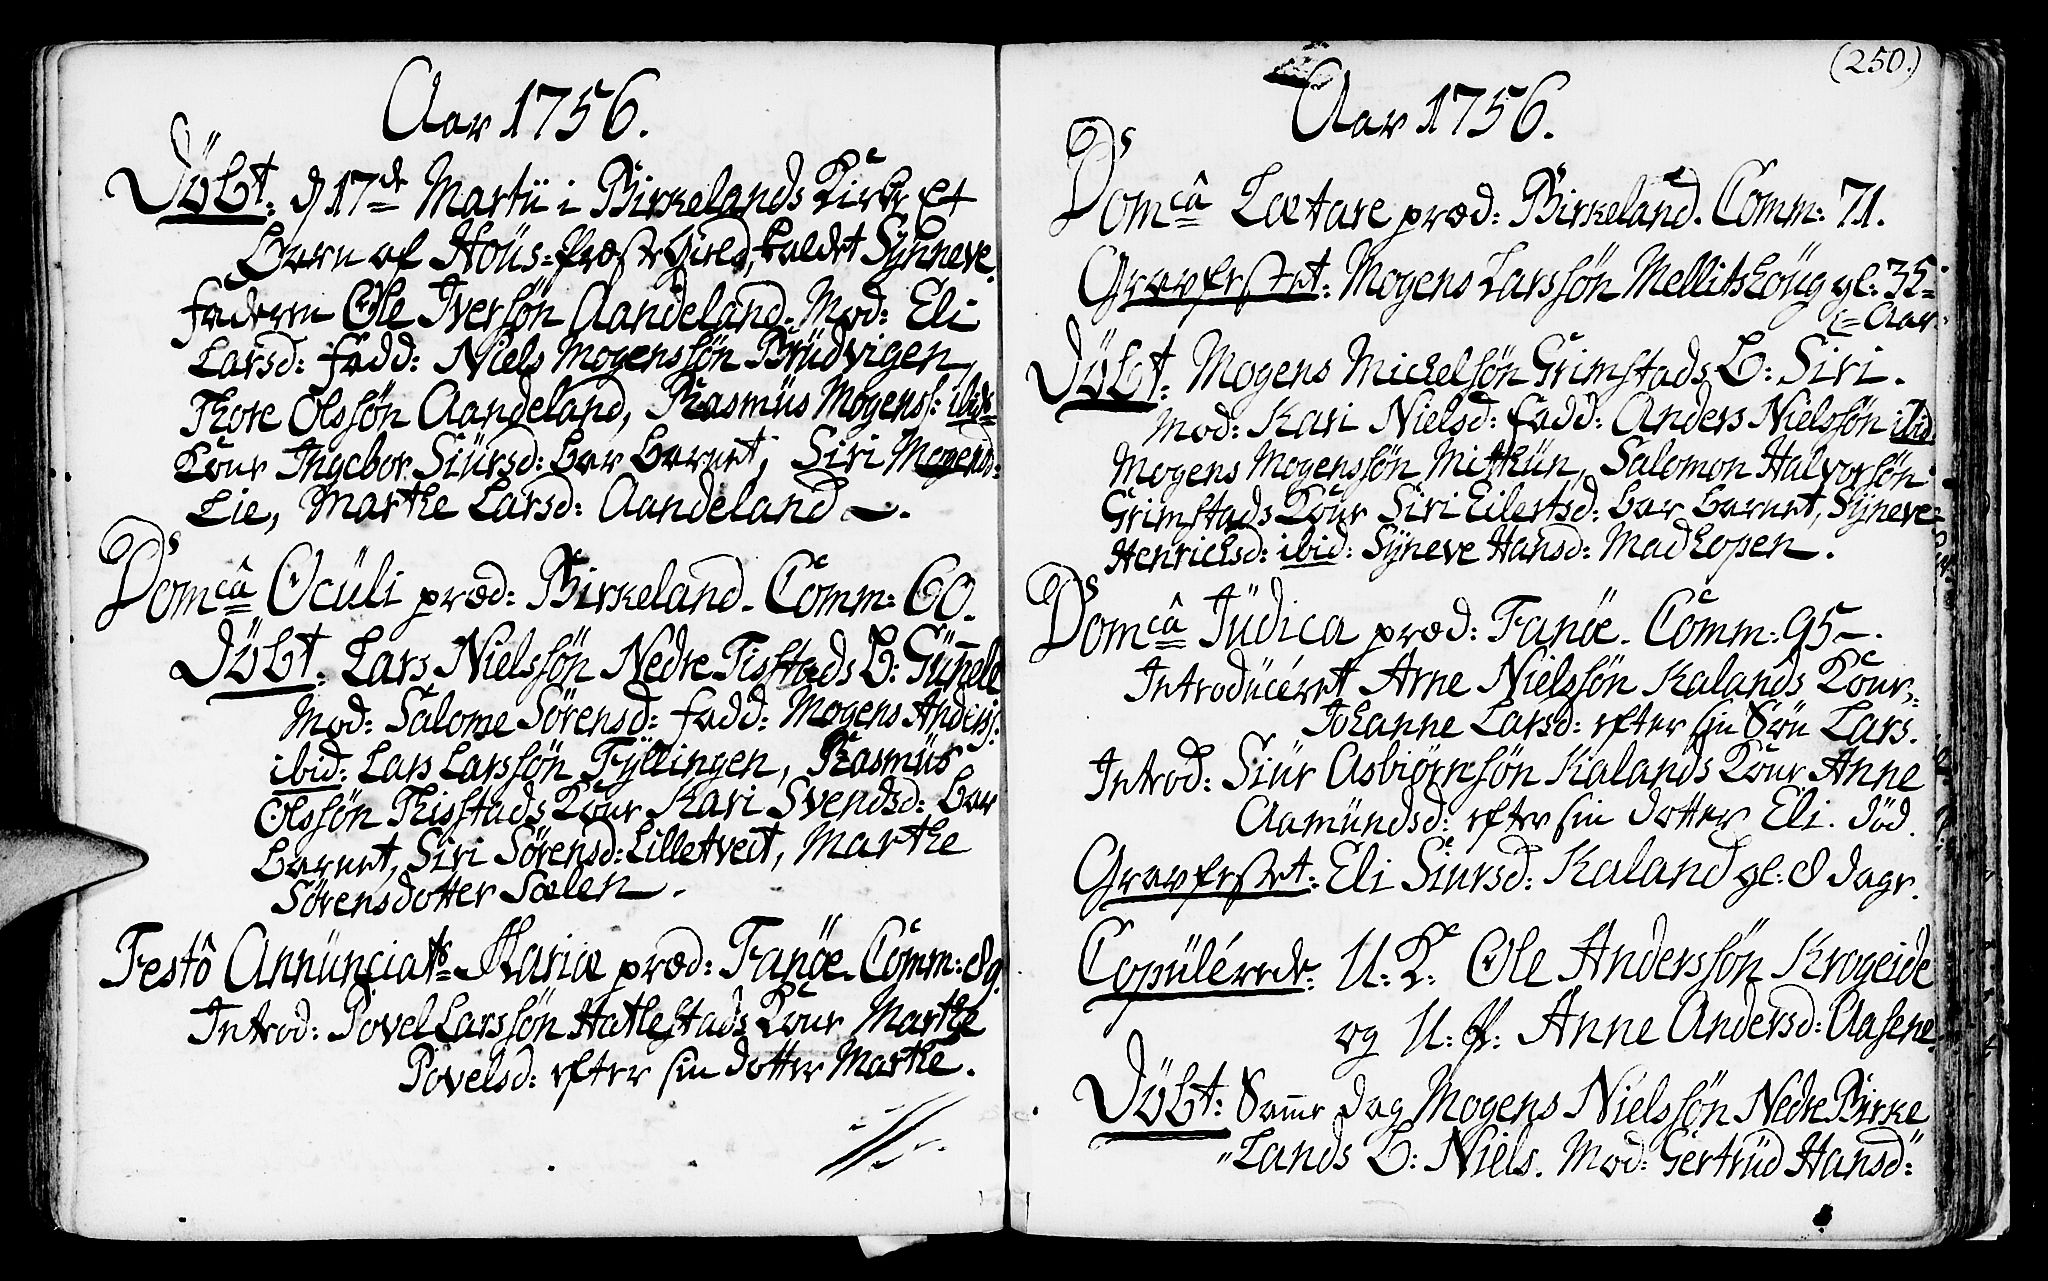 Aar 1756.
Döbt: d 17de Martii i Birkelands Kirke Et
Barn af Hoüs-Præste Gield, kaldet Sÿnneve.
Faderen Ole Iversön Aandeland. Mod: Eli
Larsd: Fadd: Niels Mogenssön Brüdvigen,
Thore Olssön Aandeland, Rasmüs Mogenss: ibid:
Kone Ingebor Siürsd: bar barnet, Siri Mogensd:
Lie, Marthe Larsd: Aandeland.
Domcâ Ocüli præd: Birkeland. Comm: 60.
Döbt: Lars Nielssön Nedre Tisstads B: Günele
Mod: Salome Sörensd: Fadd: Mogens Anderss:
ibid: Lars Larssön Fÿllingen, Rasmüs
Olssön Thisstads Kone Kari Svendsd: bar
barnet, Siri Sörensd: Lilletveit, Marthe
Sörensdotter Sælen.
Festô Annünciat: Mariæ præd: Fanöe. Comm: 89.
Introd: Povel Larssön Hatlestads Kone Marthe
Povelsd: efter sin dotter Marthe.
(250.)
Aar 1756.
Domcâ Lætare præd: Birkeland. Comm: 71.
Gravfestet: Mogens Larssön Mellitshoüg gl: 35
Aar.
Döbt: Mogens Michelsön Grimstads B: Siri.
Mod: Kari Nielsd: Fadd: Anders Nielssön ibid.
Mogens Mogenssön Mitthün, Salomon Halvorsön
Grimstads Kone Siri Eilertsd: bar barnet, Sÿneve
Henrichsd: ibid: Sÿneve Hansd: Madhopen.
Domcâ Jüdica præd: Fanöe. Comm: 95.
Introdücéret Arne Nielssön Kalands Kone,
Johanne Larsd: efter sin Sön Lars.
Introd: Siür Asbiörnsön Kalands Kone Anne
Aamündsd: efter sin dotter Eli. död.
Gravfestet: Eli Siursd: Kaland gl: 8 dage.
Copülérede: U: K: Ole Anderssön Krogeide
og U: P: Anne Andersd: Aasene.
Döbt: Samme dag Mogens Nielssön Nedre Birke
"Lands B: Niels. Mod: Gertrüd Hansd: